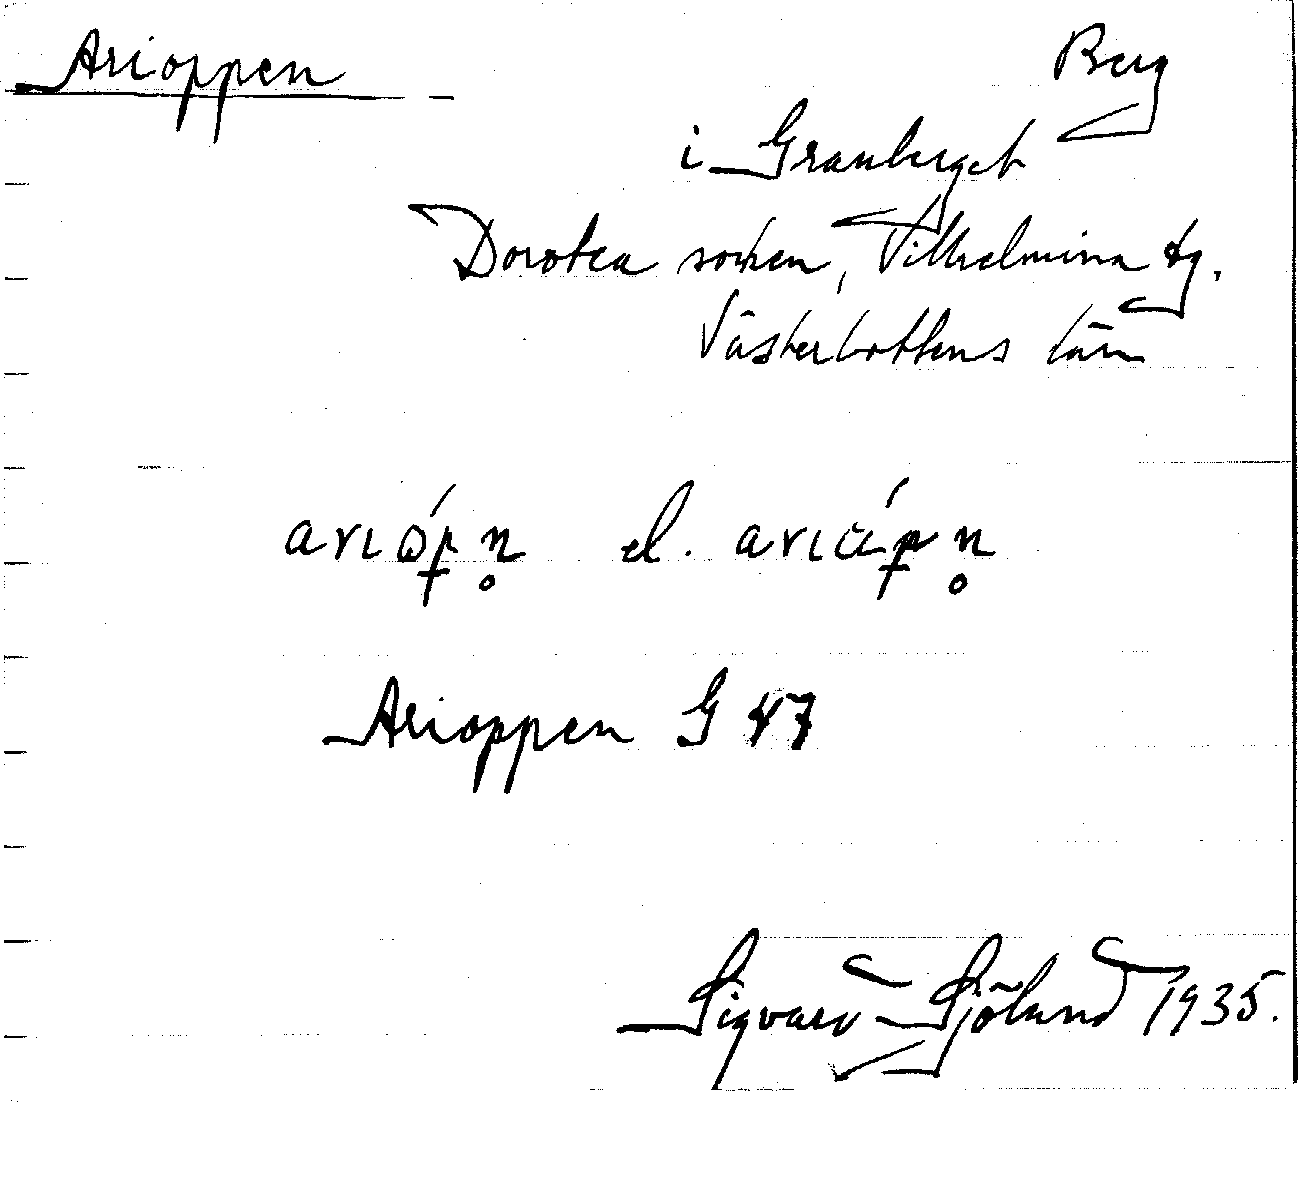 Arioppen
Berg
i Granberget
Dorotea socken, Vilhelmina tg.
Västerbottens län
el.
Arioppen G 47
Sigvard Sjölund 1935.